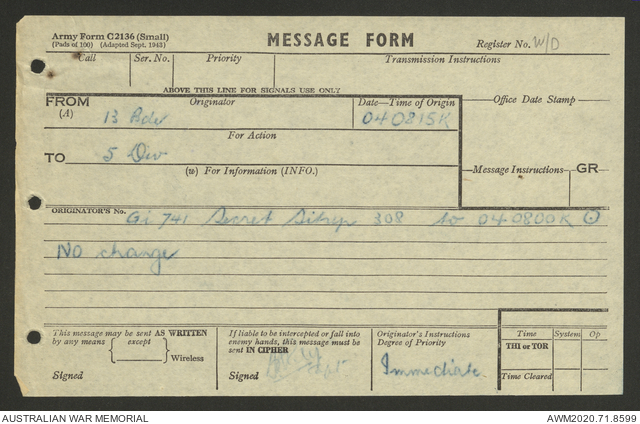 Army Form C2136 (Small)
(Pads of 100) (Adapted Sept. 1943)
MESSAGE FORM
Register No. W/D
Call Ser. No. Priority Transmission Instructions
ABOVE THIS LINE FOR SIGNALS USE ONLY
FROM Originator Date—Time of Origin Office Date Stamp
(A) 13 Bde 040815K
For Action
TO 5 Div
(W) For Information (INFO.) Message Instructions GR
ORIGINATOR'S No. Gi 741 Secret Sitrep 308 to 040800K
No change
This message may be sent AS WRITTEN
by any means except
Wireless
Signed
If liable to be intercepted or fall into
enemy hands, this message must be
sent IN CIPHER
Signed
Originator's Instructions
Degree of Priority
Immediate
Time System Op
THI or TOR
Time Cleared
AUSTRALIAN WAR MEMORIAL AWM2020.71.8599